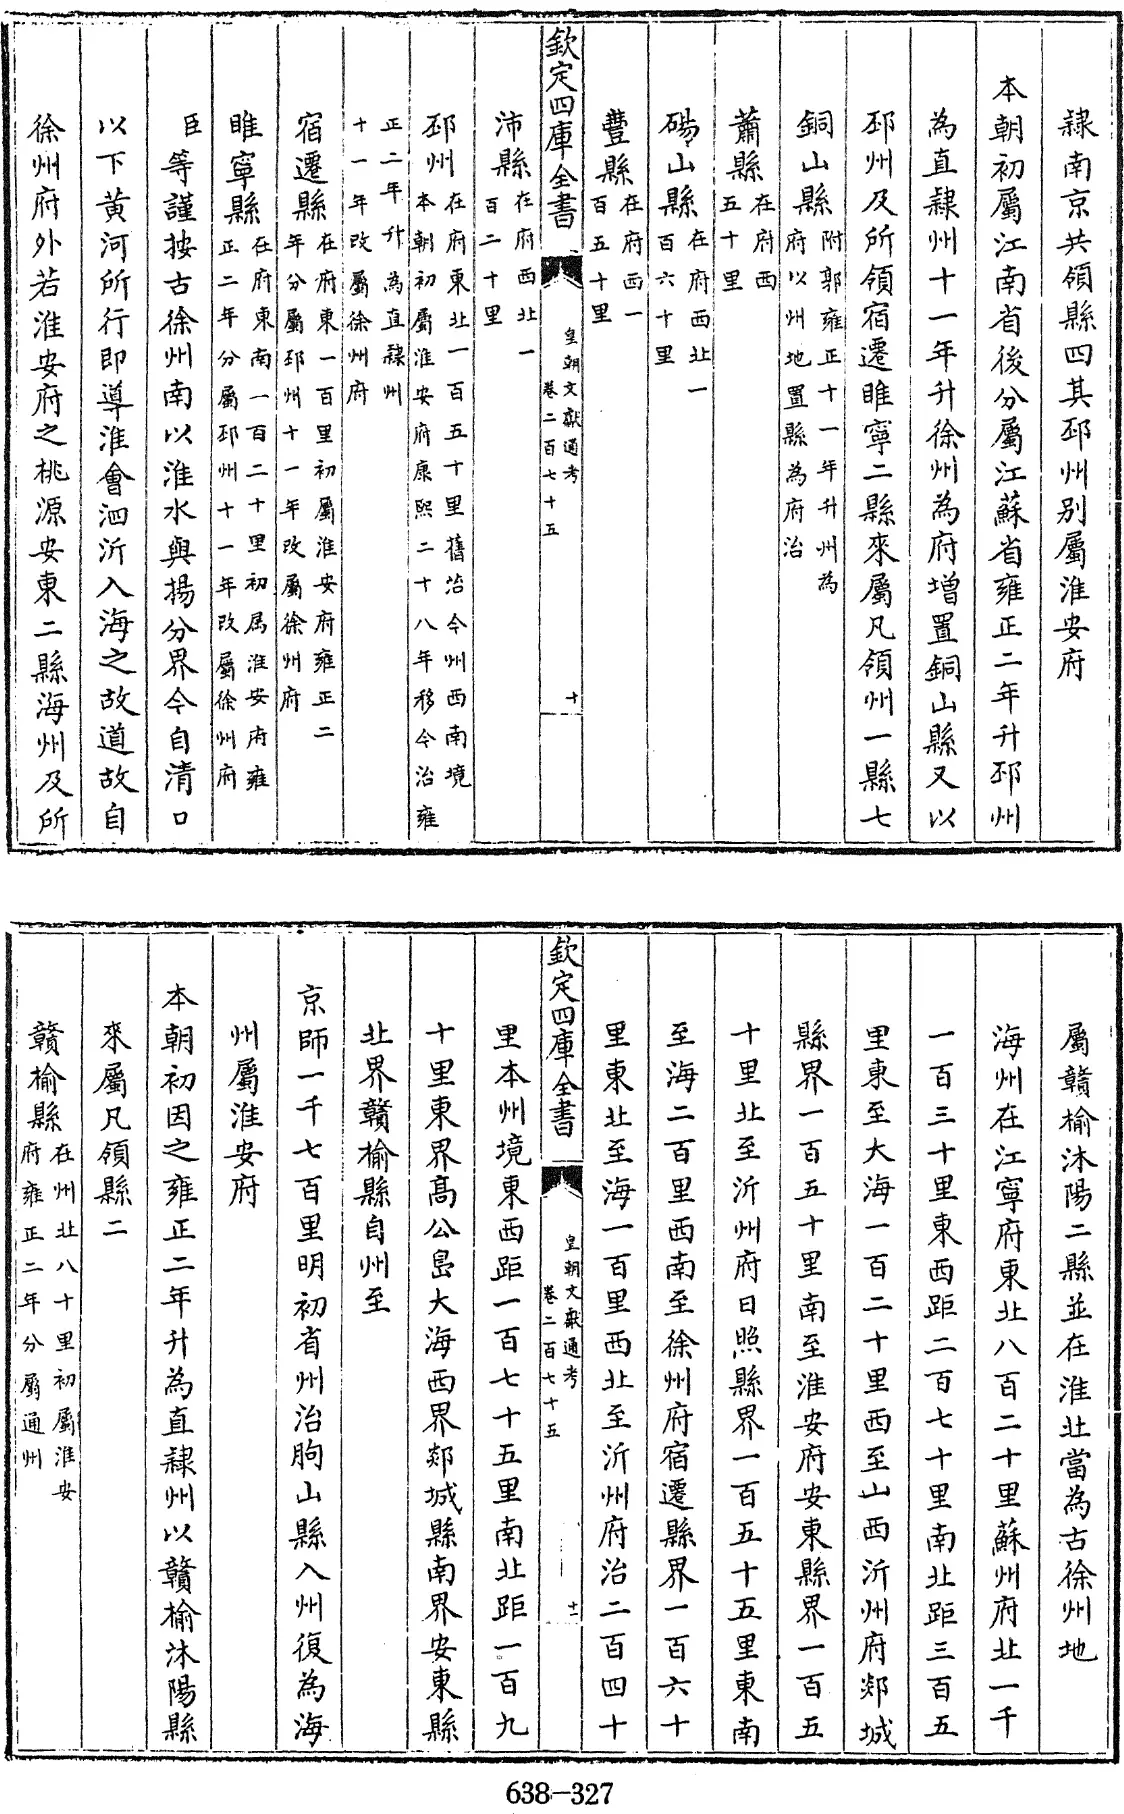 隸南京共領縣四其邳州別屬淮安府
本朝初屬江南省後分屬江蘇省雍正二年升邳州
為直隸州十一年升徐州為府增置銅山縣又以
邳州及所領宿遷睢寧二縣來屬凡領州一縣七
銅山縣附郭雍正十一年升州為
府以州地置縣為府治
蕭縣在府西
五十里
碭山縣在府西北一
百六十里
豐縣在府西一
百五十里
欽定四庫全書
皇朝文獻通考
卷二百七十五
十
沛縣在府西北一
百二十里
邳州在府東北一百五十里舊治今州西南境
本朝初屬淮安府康熙二十八年移今治雍
正二年升為直隸州
十一年改屬徐州府
宿遷縣在府東一百里初屬淮安府雍正二
年分屬邳州十一年改屬徐州府
睢寧縣在府東南一百二十里初屬淮安府雍
正二年分屬邳州十一年改屬徐州府
臣等謹按古徐州南以淮水與揚分界今自清口
以下黃河所行即導淮會泗沂入海之故道故自
徐州府外若淮安府之桃源安東二縣海州及所
屬贛榆沐陽二縣並在淮北當為古徐州地
海州在江寧府東北八百二十里蘇州府北一千
一百三十里東西距二百七十里南北距三百五
里東至大海一百二十里西至山西沂州府郯城
縣界一百五十里南至淮安府安東縣界一百五
十里北至沂州府日照縣界一百五十五里東南
至海二百里西南至徐州府宿遷縣界一百六十
里東北至海一百里西北至沂州府治二百四十
欽定四庫全書
皇朝文獻通考
卷二百七十五
十一
里本州境東西距一百七十五里南北距一百九
十里東界高公島大海西界郯城縣南界安東縣
北界贛榆縣自州至
京師一千七百里明初省州治朐山縣入州復為海
州屬淮安府
本朝初因之雍正二年升為直隸州以贛榆沐陽縣
來屬凡領縣二
贛榆縣在州北八十里初屬淮安
府雍正二年分屬通州
638-327